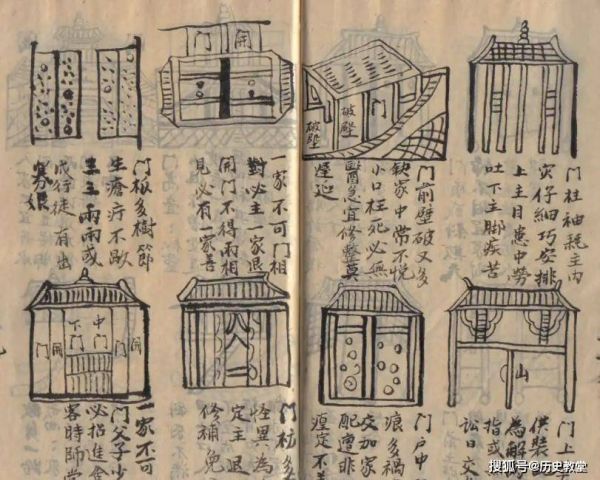 门
開
破壁
破壁
门
门柱
主內
灾仔細巧安排
上主目患中勞
吐下主脚疾苦
门前壁破又多
缺家中常不悦
小口枉死必無
醫急宜修整莫
遲延
一家不可门相
對必主一家退
開门不得兩相
見必有一家善
门板多樹節
生瘡疔不歇
兩兩或
成行徒有出
山
门
開
下门
中门
门
開
门上
為解
指或
訟日交
门户中
痕多禍
交加家
配遭非
定不
门
多
怪異為
定主退
修補免
一家不可
门父子少
必招進舍
客時師
搜狐号@历史教堂